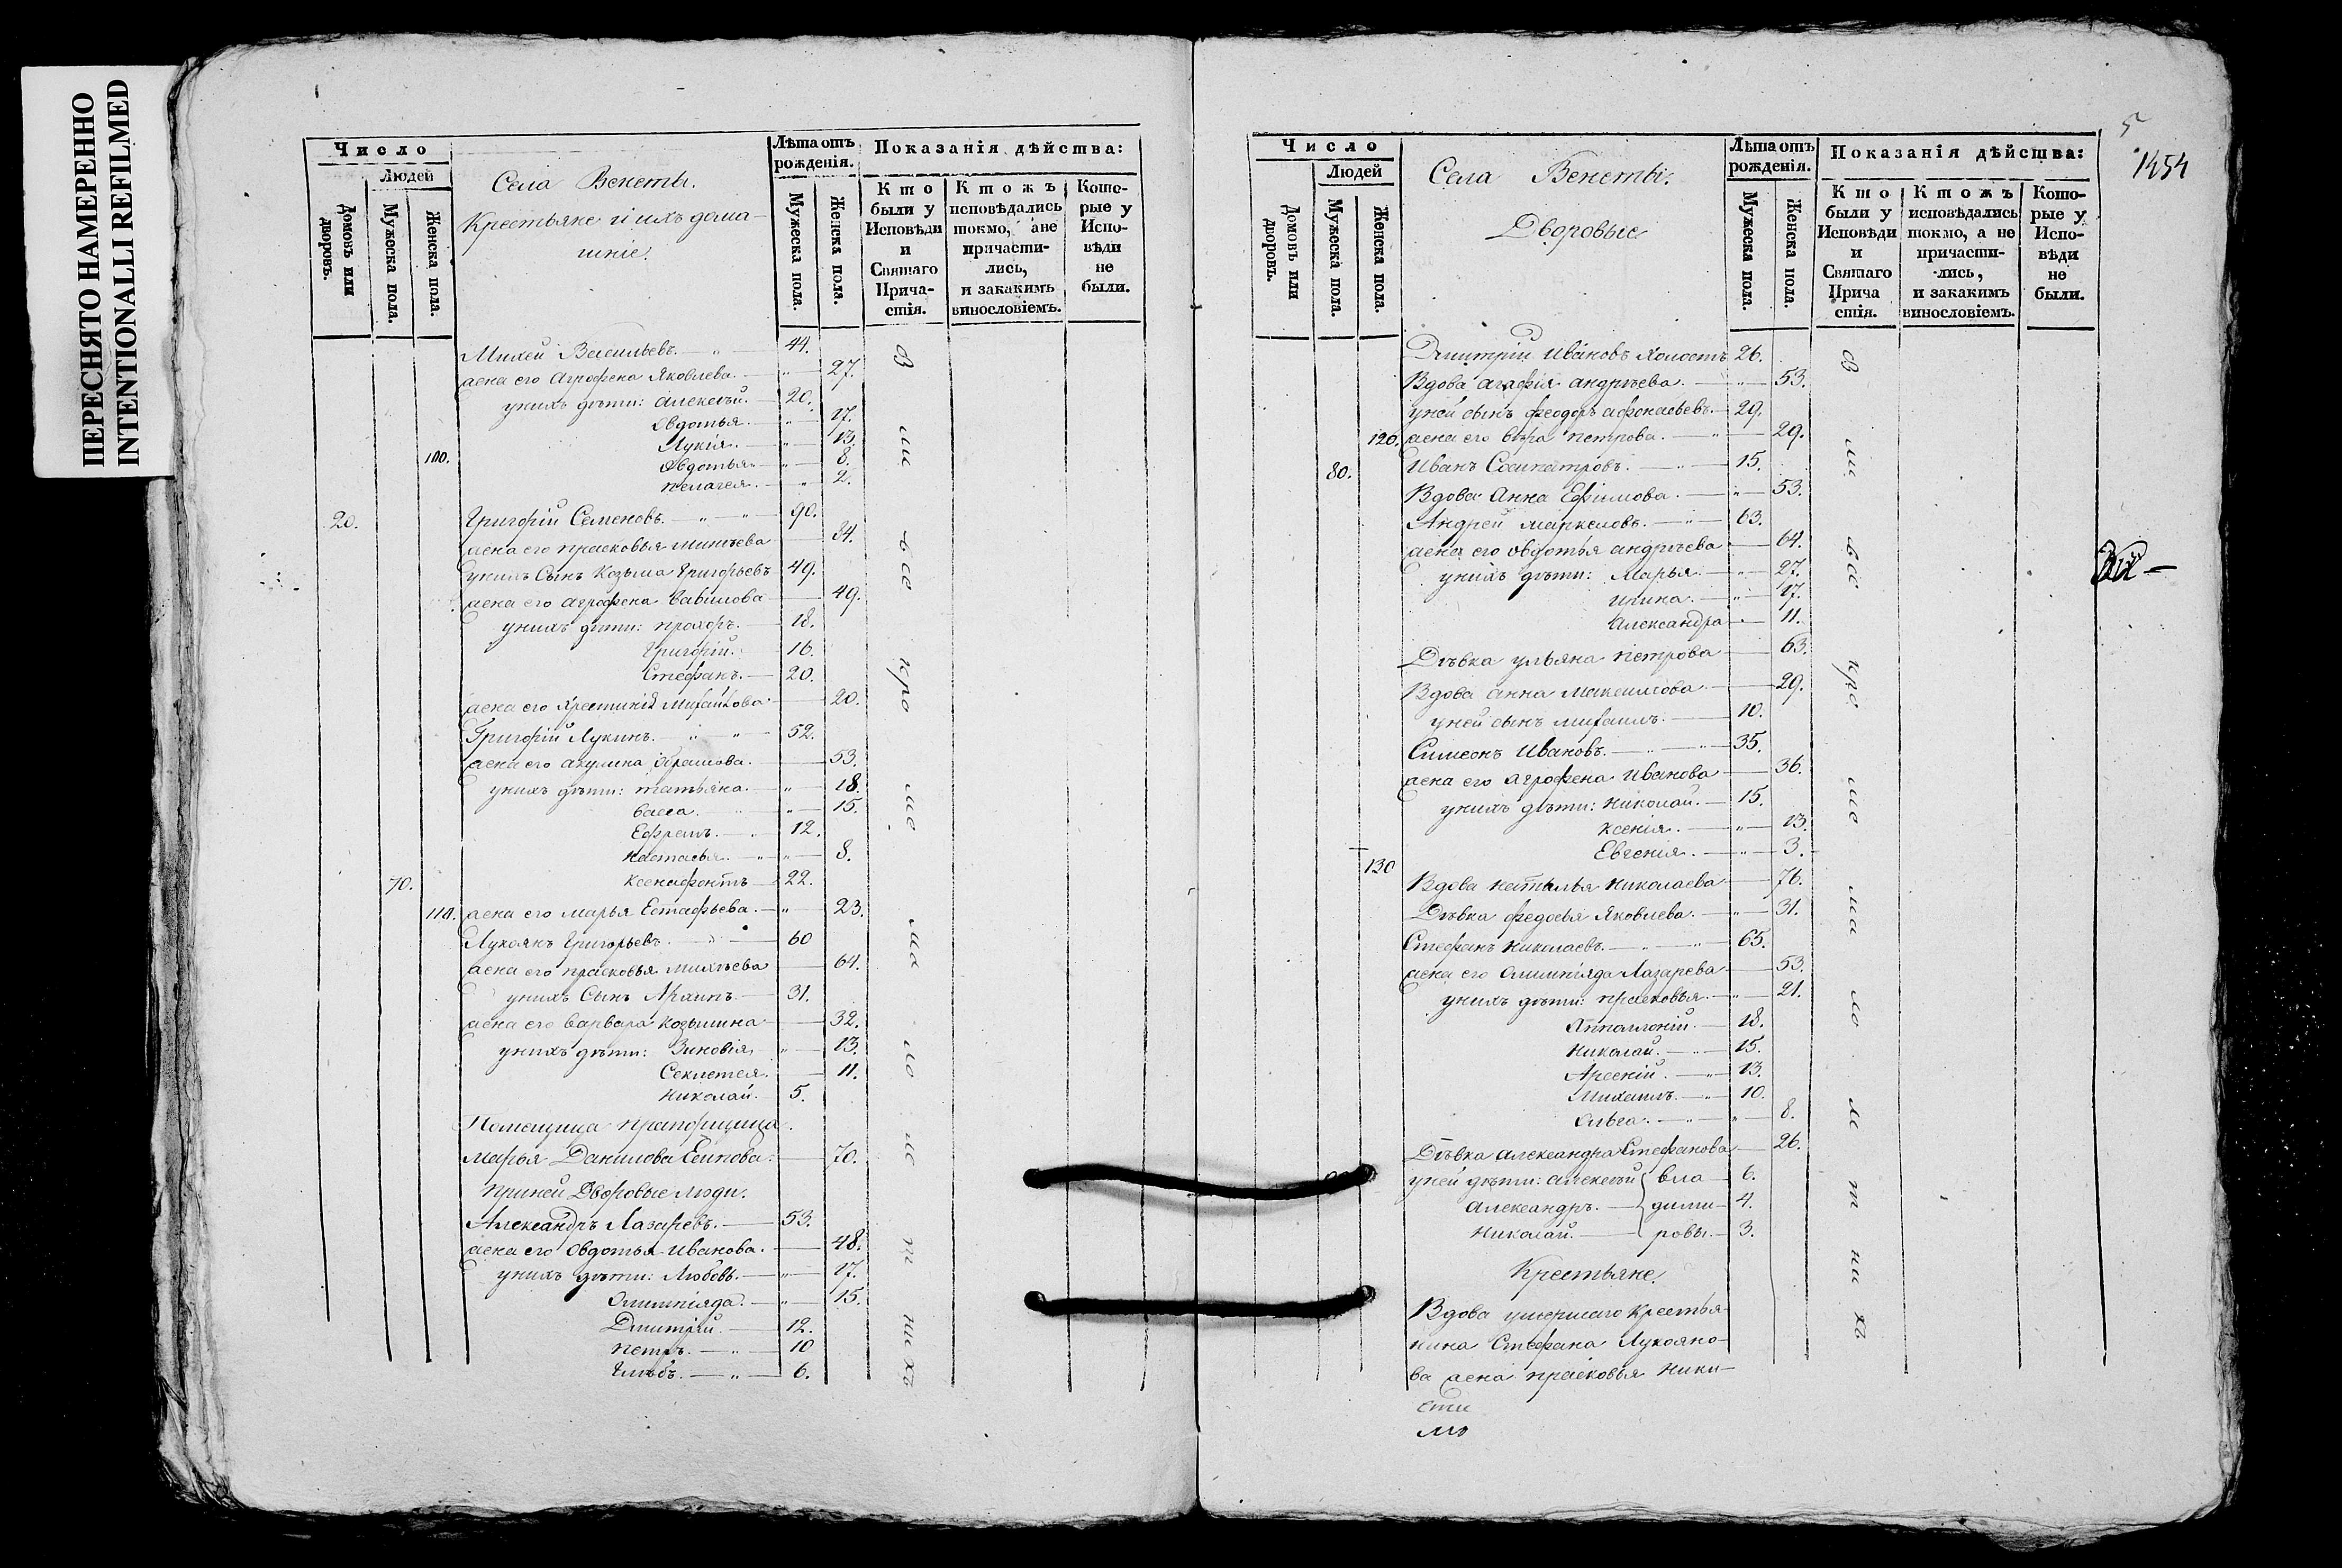 ПЕРЕСНЯТО НАМЕРЕННО
INTENTIONALLI REFILMED
Число
Людей
Домовъ или дворовъ.
Мужеска пола.
Женска пола.
Села Венеты.
Крестьяне и ихъ дома-
шніе.
Лѣта отъ рожденія.
Мужеска пола.
Женска пола.
Показанія дѣйства:
Кто были у Исповѣди и Святаго Прича-стія.
Ктожъ исповѣдались токмо, ане причасти-лись, и закакимъ винословіемъ.
Кото-рые у Испо-вѣди не были.
Михей Васильевъ. 44.
жена его Агрофена Яковлева. 27.
унихъ дѣти: Алексѣй. 20.
Овдотья. 17.
Лукія. 13.
100. Овдотья. 8.
Пелагея. 2.
20. Григорій Семеновъ. 90.
жена его Прасковья 84.
унихъ Сынъ Козьма Григорьевъ 49.
жена его Агрофена Вавилова 49.
унихъ дѣти: Прохоръ. 18.
Григорій. 16.
Стефанъ. 20.
жена его Михайлова 20.
Григорій Лукинъ. 52.
жена его Акулина 53.
унихъ дѣти: Татьяна. 18.
Васса. 15.
Ефремъ. 12.
Настасья. 8.
70. Ксенофонтъ 22.
110. жена его Марья Естафьева. 23.
Лукоянъ Григорьевъ. 60
жена его Прасковья Михѣева 64.
унихъ Сынъ Архипъ 31.
жена его Варвара Козьмина 32.
унихъ дѣти: Зиновія 13.
Секлетея. 11.
Николай. 5.
Помещица Прапорщица
Марья Данилова Есипова. 70.
при ней Дворовые люди.
Александръ Лазаревъ. 53.
жена его Овдотья Иванова. 48.
унихъ дѣти: Любовь. 17.
Олимпіяда. 15.
Дмитрій. 12.
Петръ. 10
Глѣбъ. 6.
5
1454
Число
Людей
Домовъ или дворовъ.
Мужеска пола.
Женска пола.
Села Венеты.
Дворовые
Лѣта отъ рожденія.
Мужеска пола.
Женска пола.
Показанія дѣйства:
Кто были у Исповѣди и Святаго Прича стія.
Ктожъ исповѣдались токмо, а не причасти-лись, и закакимъ винословіемъ.
Кото-рые у Испо-вѣди не были.
Дмитрій Ивановъ Холостъ 26.
Вдова Агафія Андрѣева. 53.
уней сынъ Феодоръ Афонасьевъ. 29.
120. жена его Вѣра Петрова. 29.
80. Иванъ Сосипатровъ. 15.
Вдова Анна Ефимова. 53.
Андрей Маркеловъ. 63.
жена его Овдотья Андрѣева 64.
унихъ дѣти: Марья. 27.
Ирина. 17.
Александра 11.
Дѣвка Ульяна Петрова 63.
Вдова Анна Максимова. 29.
уней сынъ Михаилъ. 10.
Симеонъ Ивановъ. 35.
жена его Агрофена Иванова 36.
унихъ дѣти: Николай. 15.
Ксенія. 13.
Евгенія. 3.
130 Вдова Наталья Николаева 76.
Дѣвка Федосья Яковлева. 31.
Стефанъ Николаевъ. 65.
жена его Олимпіяда Лазарева 53.
унихъ дѣти: Прасковья. 21.
Апполлоній. 18.
Николай. 15.
Арсеній. 13.
Михаилъ. 10.
Ольга. 8.
Дѣвка Александра Стефанова 26.
90 уней дѣти: Алексѣй вла 6.
Александръ. дими- 4.
Николай. ровы. 3.
Крестьяне.
Вдова умершаго крестья-
нина Стефана Лукояно-
ва жена Прасковья Ники-